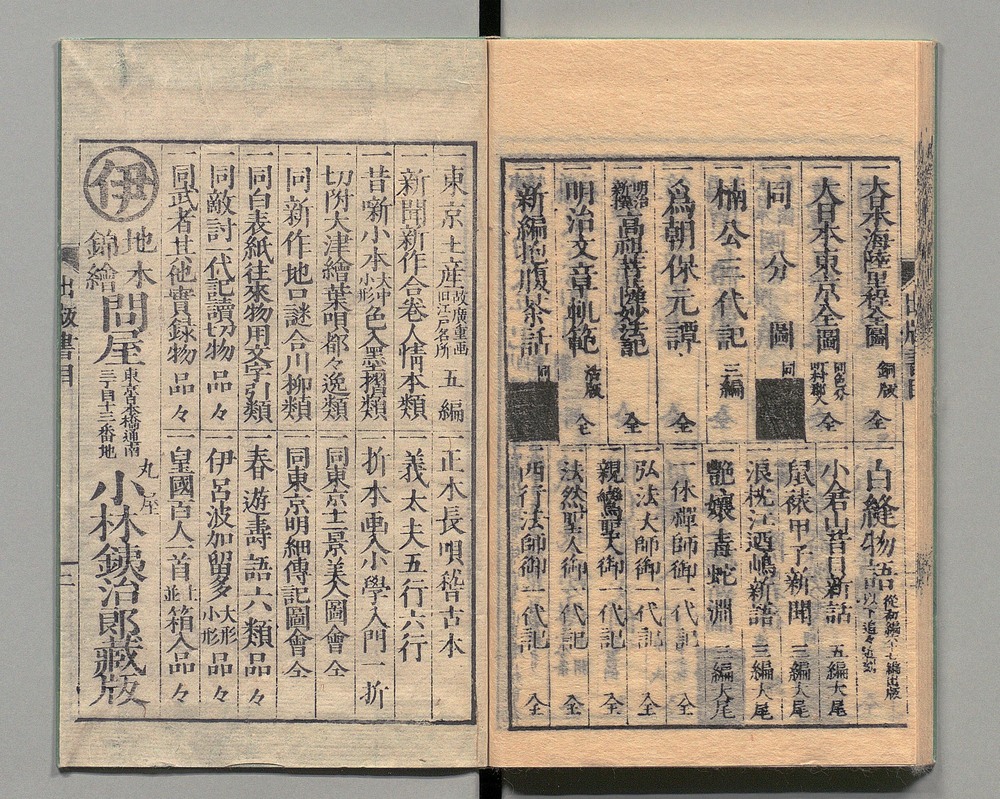 一大日本海陸里程全圖 銅版 全
一大日本東京全圖 同色分 町村聯入 全
一同 國分 圖 同
一楠公三代記 三編
一爲朝保元譚 全
一明治新撰 高祖菩薩妙法記 全
一明治文章軌範 活版 全
一新編 茶話 同
一白縫物語 從初編 出版 以下追々
一小君山昔日新話 五編大尾
一鼠祿甲子新聞 三編大尾
一浪枕江酒嶋新語 三編大尾
一艶孃毒蛇淵 三編大尾
一一休禪師御一代記 全
一弘法大師御一代記 全
一親鸞聖人御一代記 全
一法然聖人御一代記 全
一西行法師御一代記 全
出版書目
一東京土産 故廣重画 旧江戸名所 五編
一新聞新作合卷人情本類
一昔噺小本 大中小形 色入墨摺類
一切附大津繪葉唄都々逸類
一同新作地口謎合川柳類
一同白表紙往來物用文字引類
一同敵討一代記讀切物 品々
一同武者其他實録物 品々
一正本長唄稽古本
一義太夫五行六行
一折本画入小學入門一折
一同東京十二景美人圖會 全
一同東京明細傳記圖會 全
一春遊壽語六類品々
一伊呂波加留多 大形 小形 品々
一皇國百人一首 上並 箱入品々
伊 地本 錦繪 問屋 東京日本橋通南三丁目十三番地 丸屋 小林鉄治郎藏版
出版書目 二